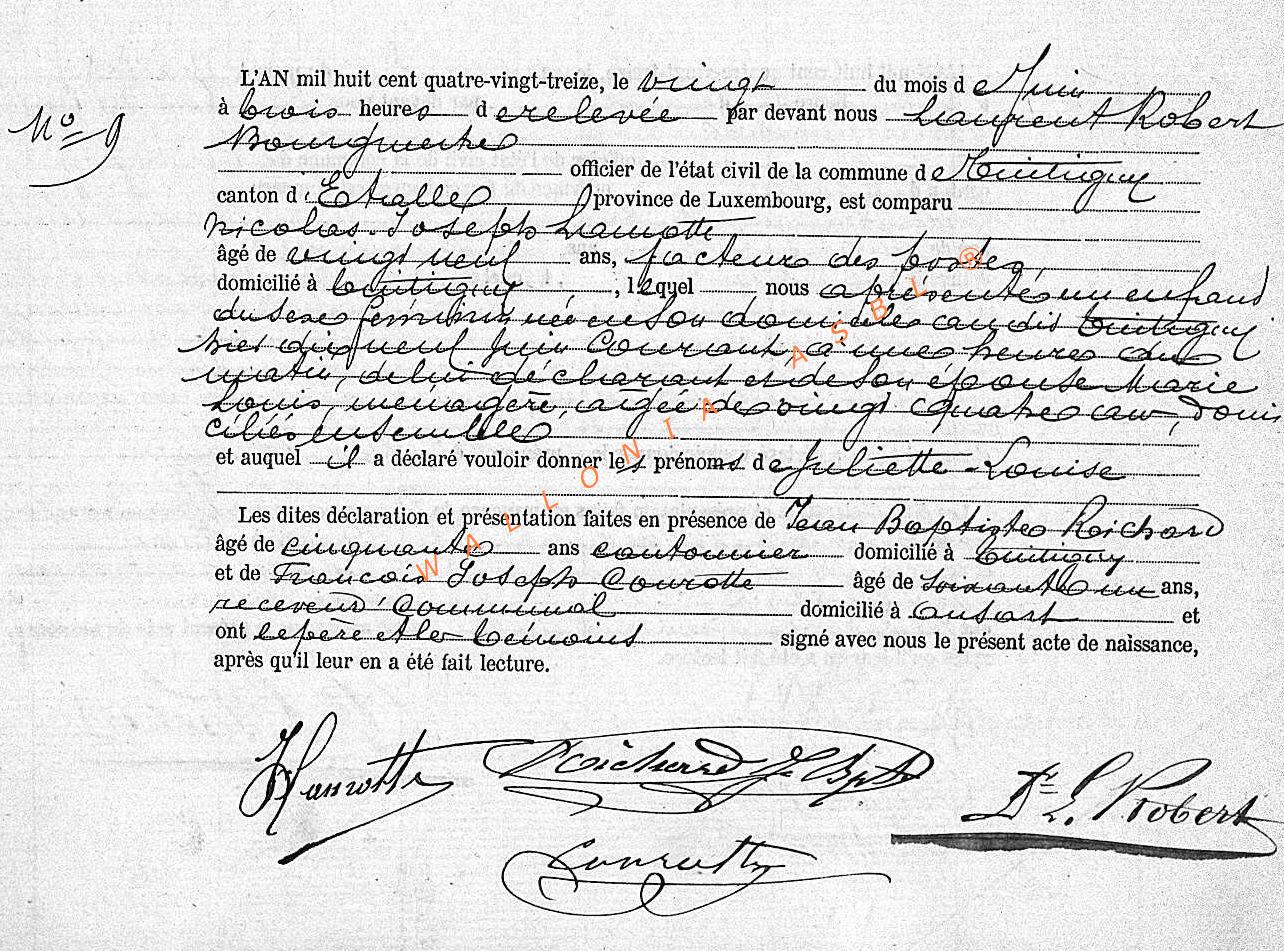 N° 9
L'AN mil huit cent quatre-vingt-treize, le vingt du mois de Juin
à trois heures de relevée par devant nous Laurent Robert
Bourgmestre
officier de l'état civil de la commune de Tintigny
canton d'Etalle province de Luxembourg, est comparu
Nicolas Joseph Lamotte
âgé de vingt neuf ans, facteur des postes,
domicilié à Tintigny, lequel nous a présenté un enfant
du sexe féminin, née en son domicile audit Tintigny
hier dix neuf Juin Courant, à une heure du
matin, de lui déclarant et de son épouse Marie
Louis, ménagère, agée de vingt quatre ans, domi
ciliés ensemble
et auquel il a déclaré vouloir donner les prénoms de Juliette Louise
Les dites déclaration et présentation faites en présence de Jean Baptiste Roichard
âgé de cinquante ans cantonnier domicilié à Tintigny
et de François Joseph Courotte âgé de soixante un ans,
receveur Communal domicilié à ansart et
ont le père et les témoins signé avec nous le présent acte de naissance,
après qu'il leur en a été fait lecture.
WALLONIA ASBL ®
Roichard J Bpte
Dr L. Robert